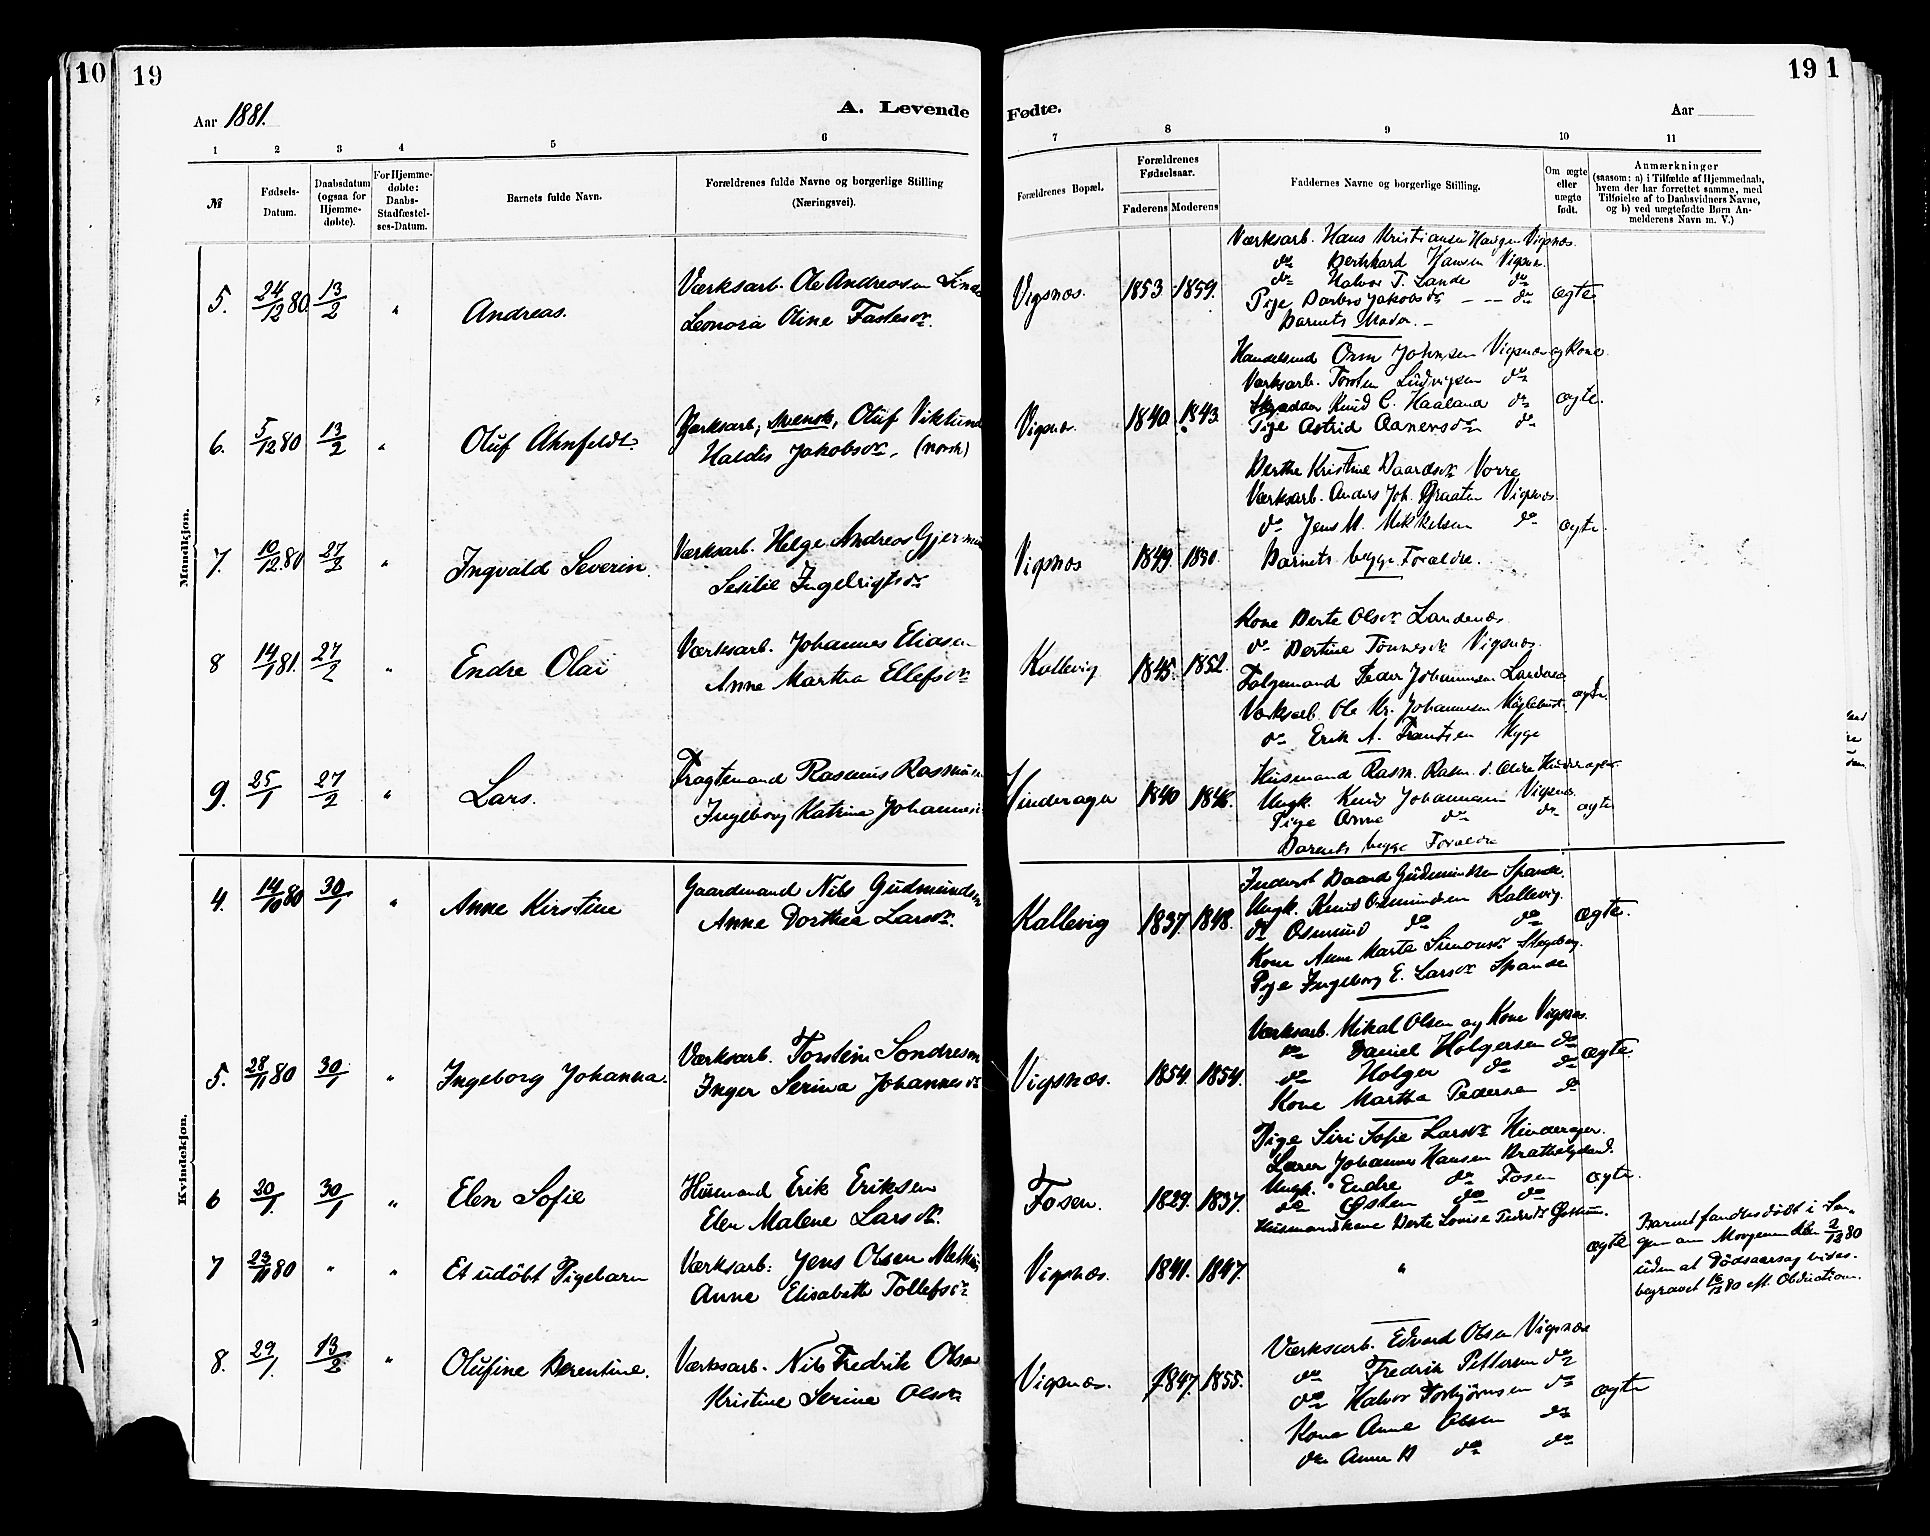 10
19
19
1
Aar 1881.
A. Levende
Fødte.
Aar
1 2 3 4 5 6 7 8 9 10 11
№
Fødsels-Datum.
Daabsdatum (ogsaa for Hjemmedøbte).
For Hjemmedøbte: Daabs-Stadfæstelses-Datum.
Barnets fulde Navn.
Forældrenes fulde Navne og borgerlige Stilling
(Næringsvei).
Forældrenes Bopæl.
Forældrenes Fødselsaar.
Faderens Moderens
Faddernes Navne og borgerlige Stilling.
Om ægte eller uægte født.
Anmærkninger
(saasom: a) i Tilfælde af Hjemmedaab,
hvem der har forrettet samme, med
Tilføielse af to Daabsvidners Navne,
og b) ved uægtefødte Børn An-
melderens Navn m. V.)
Mandkjøn.
5. 24/12 80. 13/2 " Andreas.
Værksarb. Ole Andreasen
Leonora Oline Fastesdr.
Vigsnæs. 1853 1859.
Værksarb. Hans Kristiansen Haugen Vigsnæs.
do Berthard Hansen Vigsn.
do Halvor T. Lande do
Pige Barbro Jakobsdr do
Barnets Moder.
ægte
6. 5/12 80 13/2 " Oluf Ahnfeldt.
Værksarb; svensk, Oluf Viklund
Haldis Jakobsdr. (norsk)
Vigsnæs 1840 1843
Handelsmd Orm Johnsen Vigsnæs og Kone.
Værksarb. Torsten Ludvigsen do
Skrædder Knud C. Haaland do
Pige Astrid Aanensdr do
ægte.
7. 10/12 80 27/2 " Ingvald Severin.
Værksarb. Helge Andreas
Sesilie Ingebrigtsdr
Vigsnæs 1849. 1850.
Berthe Kristine Baardsdr Vorre
Værksarb. Anders Joh. Braaten Vigsnæs.
do Jens M. Mikkelsen do
Barnets begge Forældre.
ægte.
8 14/1 81. 27/2 " Endre Olai
Værksarb. Johannes Eliasen
Anne Martha Ellefsdr
Kallevig 1845. 1852.
Kone Berte Olsdr Landenæs.
do Bertine Tønnesdr Vigsnæs.
Peder Johannesen
Værksarb. Ole Kr. Johannesen
do Erik A. Frantsen Kyge
ægte.
9. 25/1 27/2 " Lars.
Fragtemand Rasmus
Ingeborg Katrine
Hinderager 1840 1846.
Husmand Rasm. Rasm.
Ungk. Knud Johannesen Vigsnæs.
Pige Anne do do
Barnets begge Forældre
ægte
Kvindekjøn.
4. 14/10 80 30/1 " Anne Kirstine
Gaardmand Nils Gudmundsen
Anne Dorthea Larsdr.
Kallevig 1837. 1848.
Inderst Baard Gudmundsen Spande.
Ungk. Knud Osmundsen Kallevig.
do Osmund do do
Kone Anne Marte Simonsdr
Pige Ingeborg E. Larsdr Spande
ægte.
5. 28/11 80 30/1 " Ingeborg Johanna.
Værksarb. Torstein Sondresen
Inger Serina Johannesdr
Vigsnæs. 1854. 1854.
Værksarb. Mikal Olsen og Kone Vigsnæs.
do Daniel Holgersen do
do Holger do do
Kone Martha Pedersen do
ægte.
6 20/1. 30/1 " Elen Sofie
Husmand Erik Eriksen
Elen Malene Larsdr.
Fosen. 1829. 1837.
Pige Siri Sofie Larsdr Hinderager.
Lærer Johannes Hansen
Ungk. Endre do Fosen
do Østen do do
Husmandskone Berte Lovise Pedersdr
ægte.
7 23/11 80 " " Et udöbt Pigebarn
Værksarb: Jens Olsen
Anne Elisabeth Tollefsdr
Vigsnæs. 1841. 1847. "
ægte
Barnet fandtes dødt i Sen-
gen om Morgenen den 2/12 80
uden at Dødsaarsag vides.
begravet 16/12 80 eft. Obduction.
8. 29/1. 13/2 " Olufine Berentine.
Værksarb. Nils Fredrik Olsen
Kristine Serine Olsdr
Vigsnæs. 1847. 1855.
Værksarb. Edvard Olsen Vigsnæs
do Fredrik Pettersen do
do Halvor Torbjørnsen do
Kone Anne Olsen do
do Anne B do do
ægte